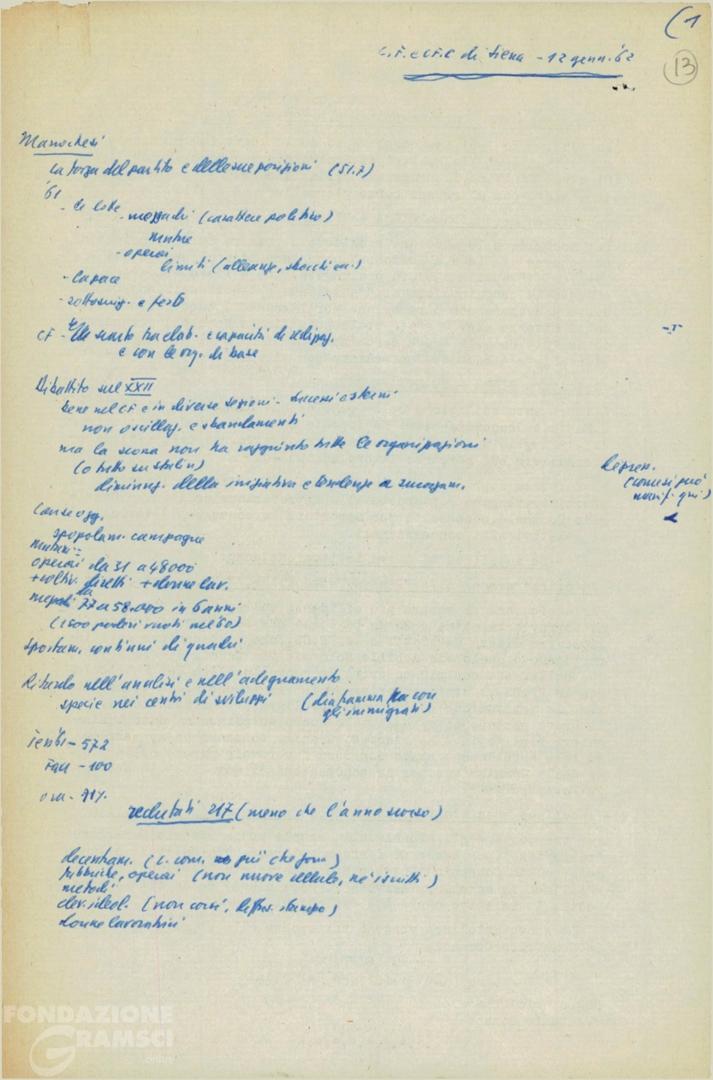 (1
C.F. e C.F.C. di Siena - 12 genn. '62
13
Marochesi
La forza del partito e delle sue posizioni (51.7)
'61
- le lotte
- mezzadri (carattere politico)
- operai
limiti (alleanze, sbocchi
- Capace
- e feste
CF -
e con le org. di base
Dibattito sul XXII
bene nel CF e in diverse sezioni - successi esterni
non oscillaz. e sbandamenti
ma la scossa non ha raggiunto tutte le organizzazioni
(o tutto su Stalin)
diminuz. della iniziativa e tendenze a
(come si può
qui)
spopolam. campagne
operai da 31 a 48000
+ coltiv. diretti + donne lav.
mezzadri da 77 a 58.000 in 6 anni
(1500 poderi vuoti nel 60)
Spostam. continui di quadri
Ritardo nell'analisi e nell'adeguamento
specie nei centri di sviluppo (diaframma tra con
gli immigrati)
- 572
- 100
ora - 71%
reclutati 217 (meno che l'anno scorso)
decentram. (C. com. più che form)
fabbriche, operai (non nuove cellule, né iscritti)
metodi
elev. ideol. (non corsi, diffus. stampa)
donne lavoratrici
FONDAZIONE
GRAMSCI
onlus